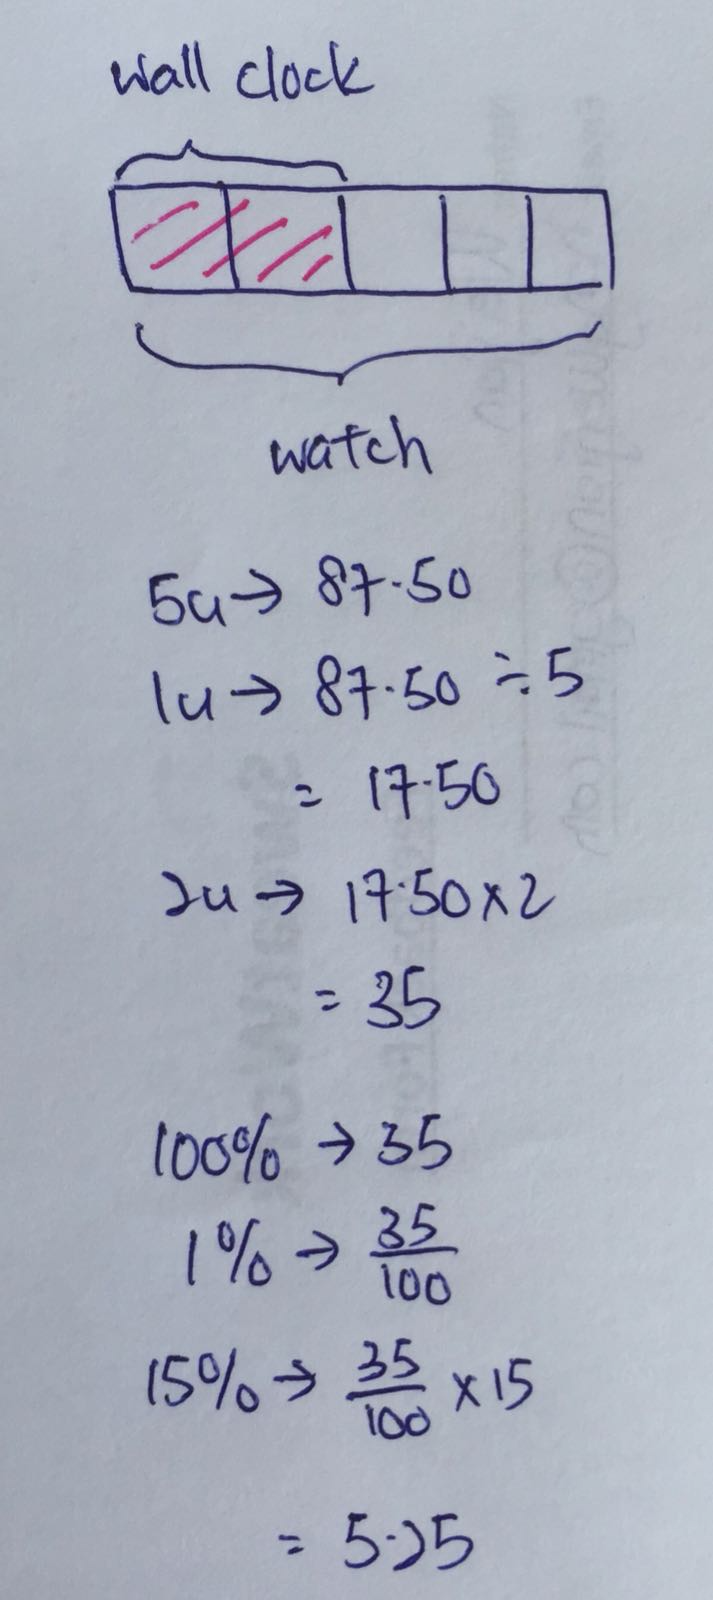 wall clock
watch
5u → 87.50
1u → 87.50 ÷ 5
= 17.50
2u → 17.50 × 2
= 35
100% → 35
1% → 35/100
15% → 35/100 × 15
= 5.25